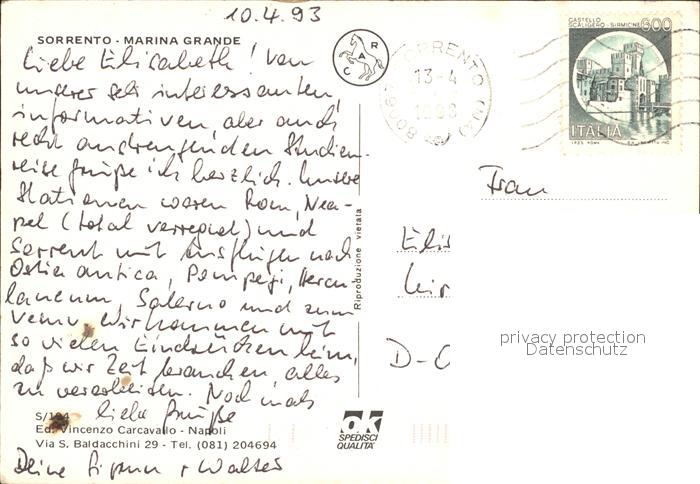 10.4.93
SORRENTO - MARINA GRANDE
Liebe Elisabeth! Von
unserer sehr interessanten,
informativen aber auch
recht anstrengenden Studien-
reise grüße ich herzlich. Unsere
Stationen waren Rom, Nea-
pel (total verregnet) und
Sorrent mit Ausflügen nach
Ostia antica, Pompeji, Hercu-
laneum, Salerno und zum
Vesuv. Wir kommen mit
so vielen Eindrücken heim,
daß wir Zeit brauchen, alles
zu verarbeiten. Nochmals
liebe Grüße
Deine + Walter
S/104
Ed. Vincenzo Carcavallo - Napoli
Via S. Baldacchini 29 - Tel. (081) 204694
CAR
Riproduzione vietata
OK
SPEDISCI
QUALITA'
SORRENTO (NA)
13-4
CASTELLO
SCALIGERO - SIRMIONE
600
ITALIA
Frau
D-
privacy protection
Datenschutz